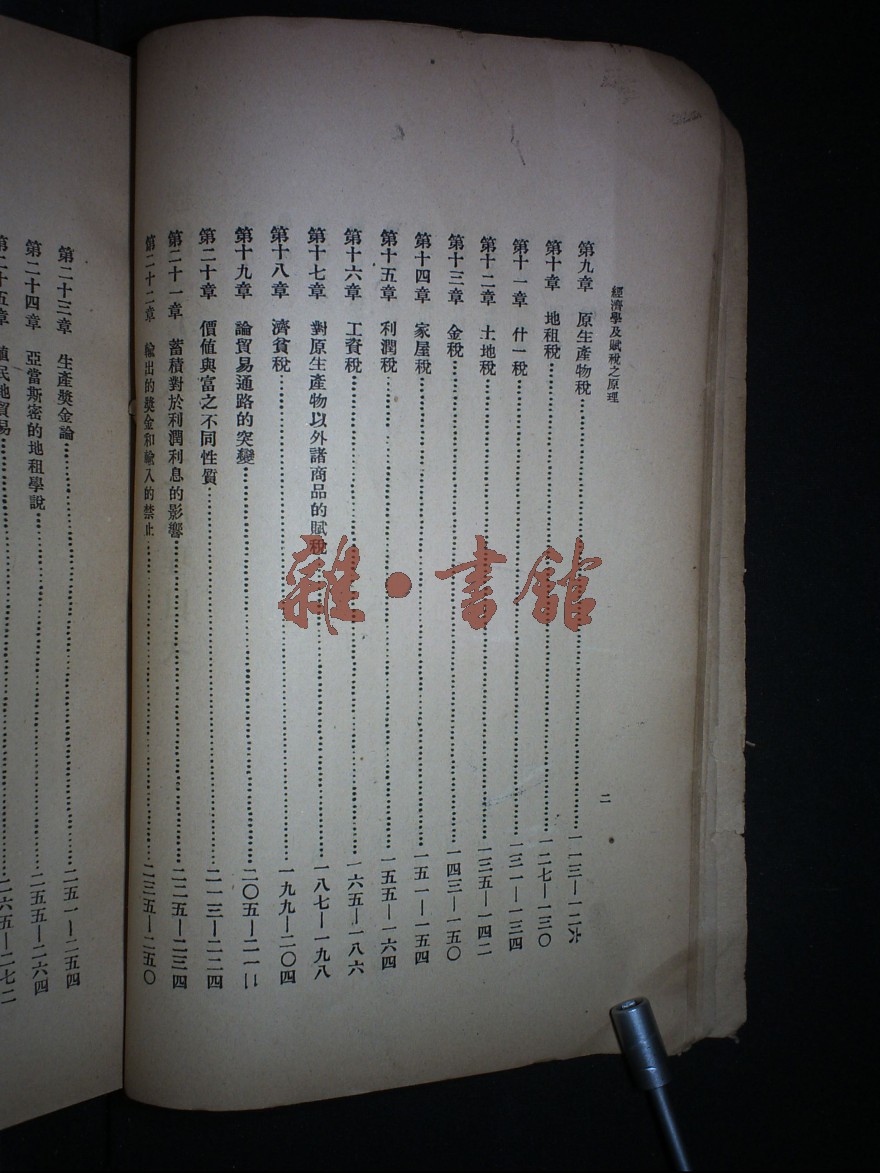 經濟學及賦稅之原理
二
第九章 原生產物稅…………一一三—一二六
第十章 地租稅…………一二七—一三〇
第十一章 什一稅…………一三一—一三四
第十二章 土地稅…………一三五—一四二
第十三章 金稅…………一四三—一五〇
第十四章 家屋稅…………一五一—一五四
第十五章 利潤稅…………一五五—一六四
第十六章 工資稅…………一六五—一八六
第十七章 對原生產物以外諸商品的賦稅…………一八七—一九八
第十八章 濟貧稅…………一九九—二〇四
第十九章 論貿易通路的突變…………二〇五—二一二
第二十章 價值與富之不同性質…………二一三—二二四
第二十一章 蓄積對於利潤利息的影響…………二二五—二三四
第二十二章 輸出的獎金和輸入的禁止…………二三五—二五〇
第二十三章 生產獎金論…………二五一—二五四
第二十四章 亞當斯密的地租學說…………二五五—二六四
第二十五章 殖民地貿易…………二六五—二七二
雜·書館